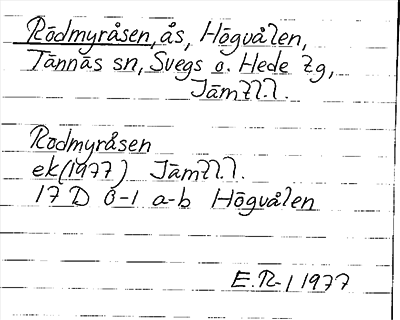 Rödmyråsen, ås, Högvålen,
Tännäs sn, Svegs o. Hede tg,
Jämtl.l.
Rödmyråsen
ek (1977) Jämtl.l.
17 D 0-1 a-b Högvålen
E.R-l 1977